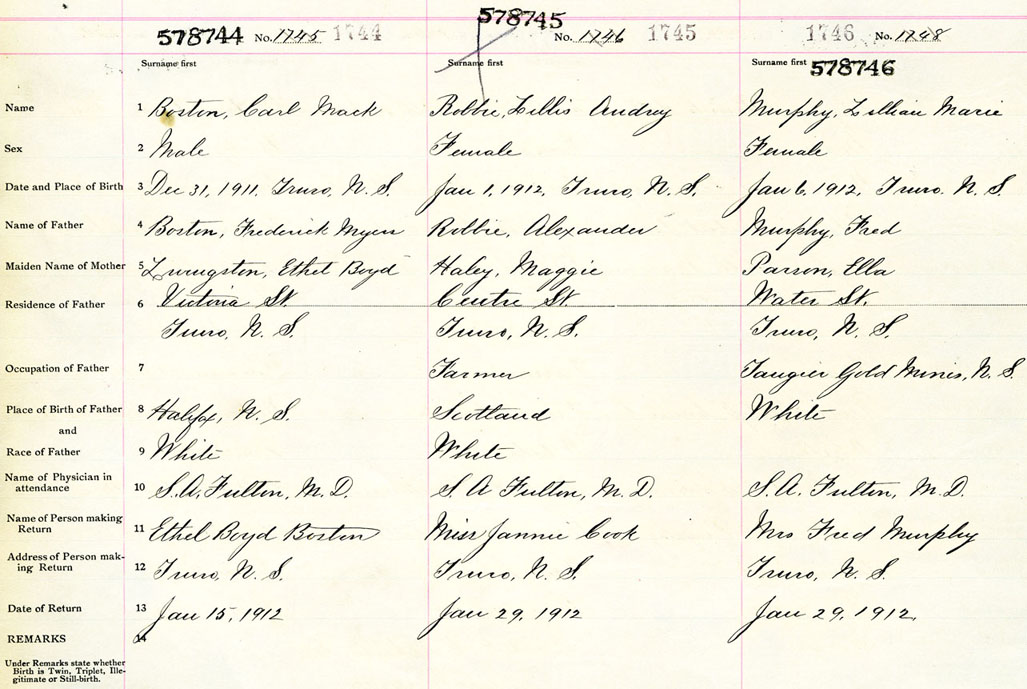 578744 No. 1745 1744 578745 No. 1746 1745 1746 No. 1748
Surname first Surname first Surname first 578746
Name 1 Boston, Carl Mack Robbie, Lillis Audray Murphy, Lillian Marie
Sex 2 Male Female Female
Date and Place of Birth 3 Dec 31, 1911, Truro, N. S. Jan 1, 1912, Truro, N. S. Jan 6, 1912, Truro. N. S.
Name of Father 4 Boston, Frederick Myers Robbie, Alexander Murphy, Fred
Maiden Name of Mother 5 Livingston, Ethel Boyd Haley, Maggie Parson, Ella
Residence of Father 6 Victoria St. Centre St. Water St.
Truro, N. S. Truro, N. S. Truro, N. S.
Occupation of Father 7 Farmer Tangier Gold Mines, N. S.
Place of Birth of Father 8 Halifax, N. S. Scotland White
and
Race of Father 9 White White
Name of Physician in
attendance 10 S. A. Fulton, M. D. S. A Fulton, M. D. S. A. Fulton, M. D.
Name of Person making
Return 11 Ethel Boyd Boston Miss Jannie Cook Mrs Fred Murphy
Address of Person mak-
ing Return 12 Truro, N. S. Truro, N. S. Truro, N. S.
Date of Return 13 Jan 15, 1912 Jan 29, 1912 Jan 29, 1912,
REMARKS 14
Under Remarks state whether
Birth is Twin, Triplet, Ille-
gitimate or Still-birth.